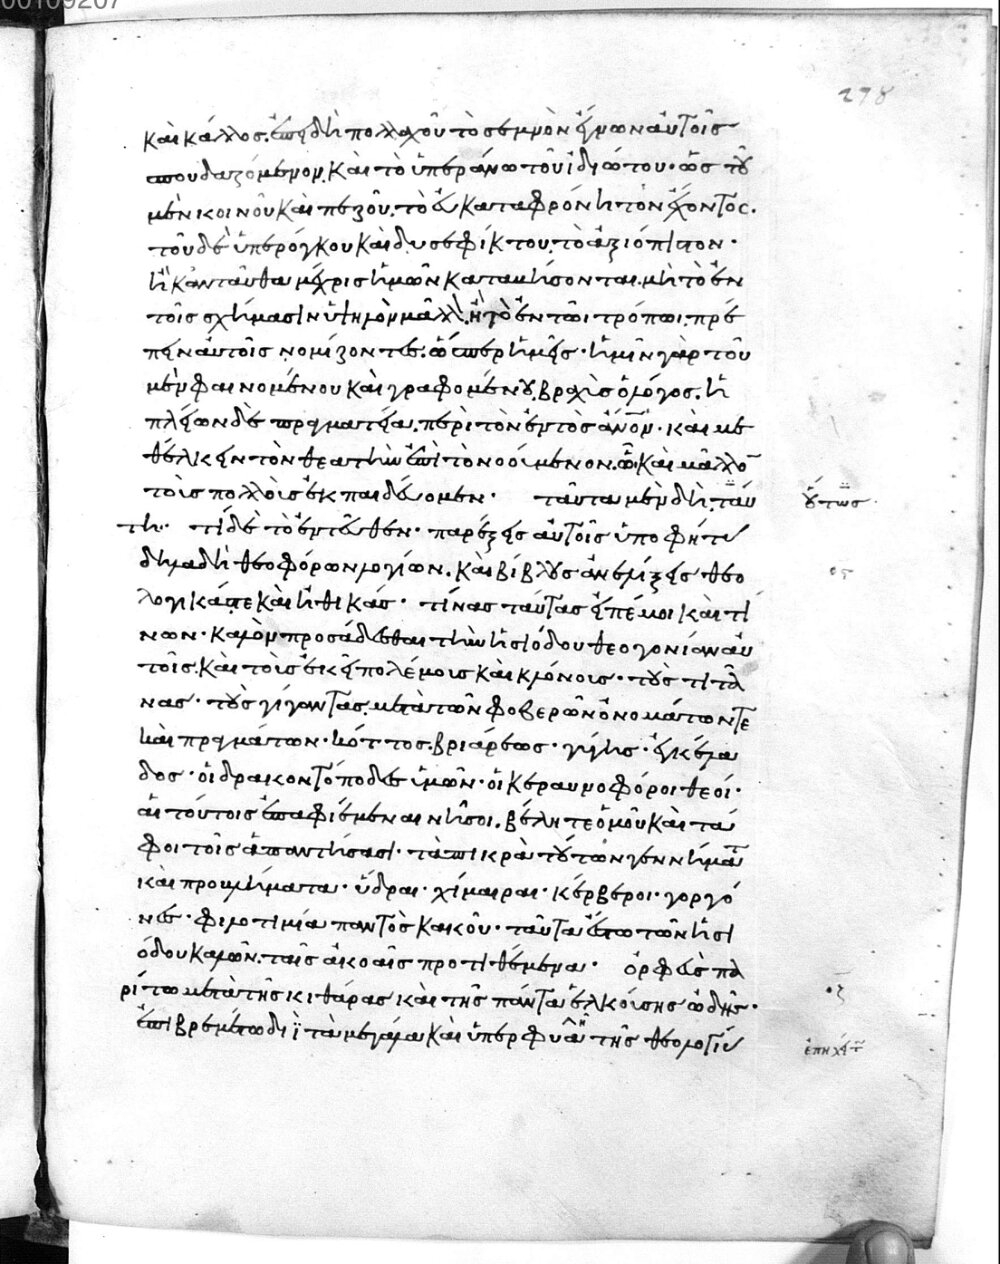 00109207
278
καὶ κάλλος. ἐπειδὴ πολλαχοῦ τὸ σεμνὸν ἡμῶν αὐτοῖς
σπουδαζόμενον. καὶ τὸ ὑπεράνω τοῦ ἰδιώτου· ὡς τοῦ
μὲν κοινοῦ καὶ πεζοῦ. τὸ εὐκαταφρόνητον ἔχοντος.
τοῦ δὲ ὑπερόγκου καὶ δυσεφίκτου. τὸ ἀξιόπιστον·
ἢ κἀνταῦθα μέχρις ἡμῶν καταβήσονται. μὴ τὸ ἐν
τοῖς σχήμασιν μᾶλλον. ἢ τὸ ἐν τῶι τρόπωι. πρέ
πειν αὐτοῖς νομίζοντες. ὥσπερ ἡμεῖς· ἡμῖν γὰρ τοῦ
μὲν φαινομένου καὶ γραφομένου. βραχὺς ὁ λόγος. ἡ
πλείων δὲ πραγματεία. περὶ τὸν ἐντὸς ἄνον· καὶ με
θέλκειν τὸν θεατὴν ἐπὶ τὸ νοούμενον. ὧι καὶ μᾶλλον
τοὺς πολλοὺς ἐκπαιδεύομεν· ταῦτα μὲν δὴ ταύ
οὕτως
τη· τί δὲ τὸ ἐντεῦθεν· παρέξεις αὐτοῖς ὑποφήτας
δηλαδὴ θεοφόρων λογίων. καὶ βίβλους ἀνελίξεις θεο
λογικάς τε καὶ ἠθικάς· τίνας ταύτας εἰπέ μοι καὶ τί
νων· καλὸν προσάδεσθαι τὴν ἡσιόδου θεογονίαν αὐ
τοῖς. καὶ τοὺς ἐκεῖ πολέμους καὶ κλόνους· τοὺς τιτᾶ
νας· τοὺς γίγαντας. μετὰ τῶν φοβερῶν ὀνομάτων τε
καὶ πραγμάτων· κόττος. βριάρεως· γύγης· ἐγκέλα
δος· οἱ δρακοντόποδες ὑμῶν· οἱ κεραυνοφόροι θεοί·
αἱ τούτοις ἐπαφιέμεναι νῆσοι. βέλη τε ὁμοῦ καὶ τά
φοι τοῖς ἀπαντήσασι· τὰ πικρὰ τούτων γεννήματα
καὶ προβλήματα· ὕδραι· χίμαιραι· κέρβεροι· γοργό
νες· φιλοτιμία παντὸς κακοῦ· ταῦτα ἔστω τῶν ἡσι
όδου καλῶν. ταῖς ἀκοαῖς προτιθέμενα· ὀρφεὺς πα
ρίτω μετὰ τῆς κιθάρας καὶ τῆς πάντα ἑλκούσης ὠδῆς·
ἐπιβρεμέτω διῒ τὰ μεγάλα καὶ ὑπερφυᾶ τῆς θεολογίας